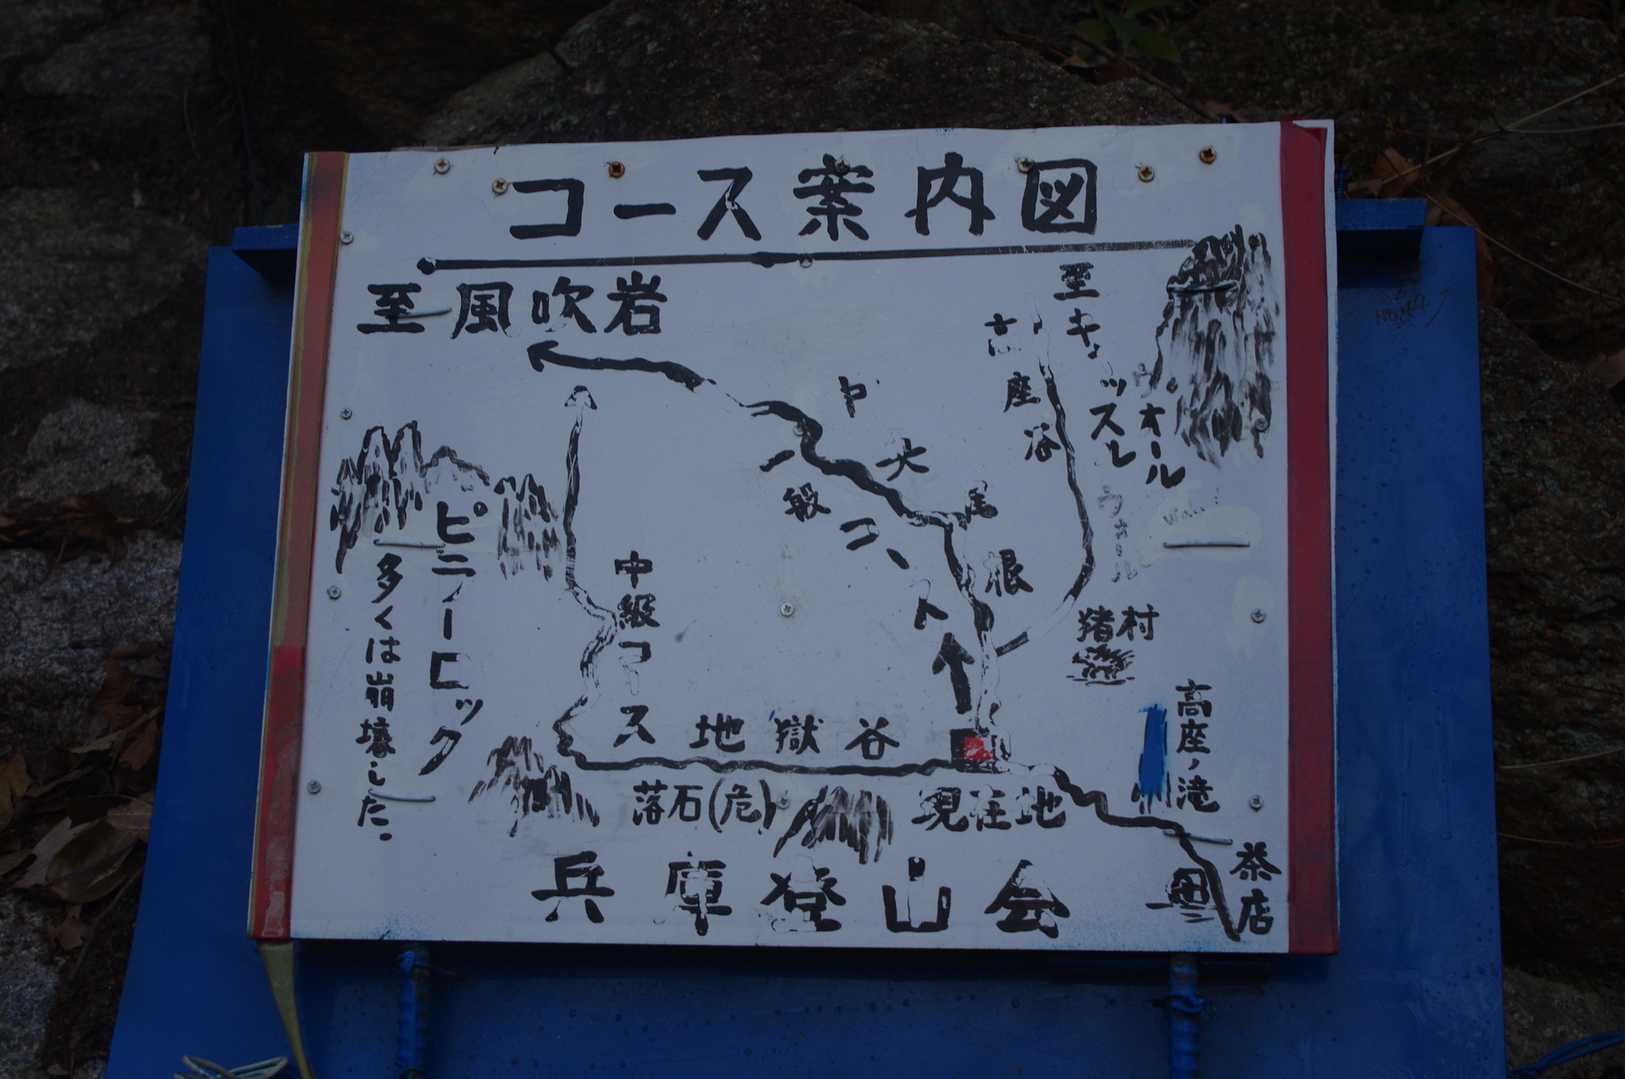 コース案内図
至風吹岩
至キャッスル
ウォール
高座谷
中央尾根
一般コート
猪村
高座ノ滝
茶店
ピラーロック
多くは崩壊した。
中級コース
地獄谷
落石(危)
現在地
兵庫登山会